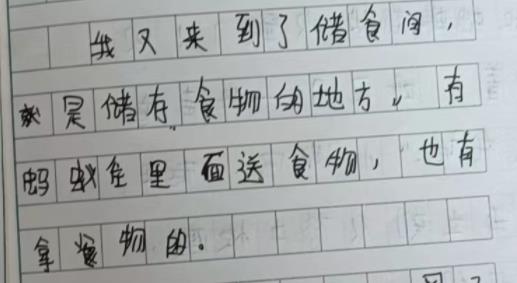 我又来到了储食间，
就是储存食物的地方，有
蚂蚁在里面送食物，也有
拿食物的。